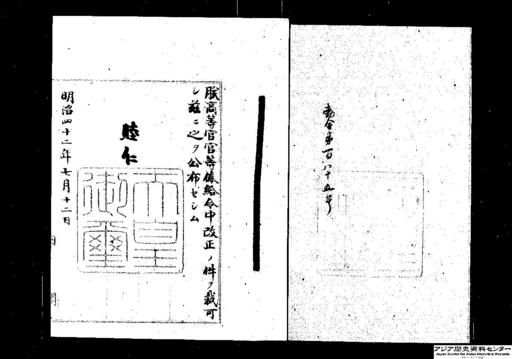 勅令第一百八十五号
朕高等官官等俸給令中改正ノ件ヲ裁可
シ茲ニ之ヲ公布セシム
睦仁
天皇御璽
明治四十二年七月十二日
アジア歴史資料センター
Japan Center for Asian Historical Records